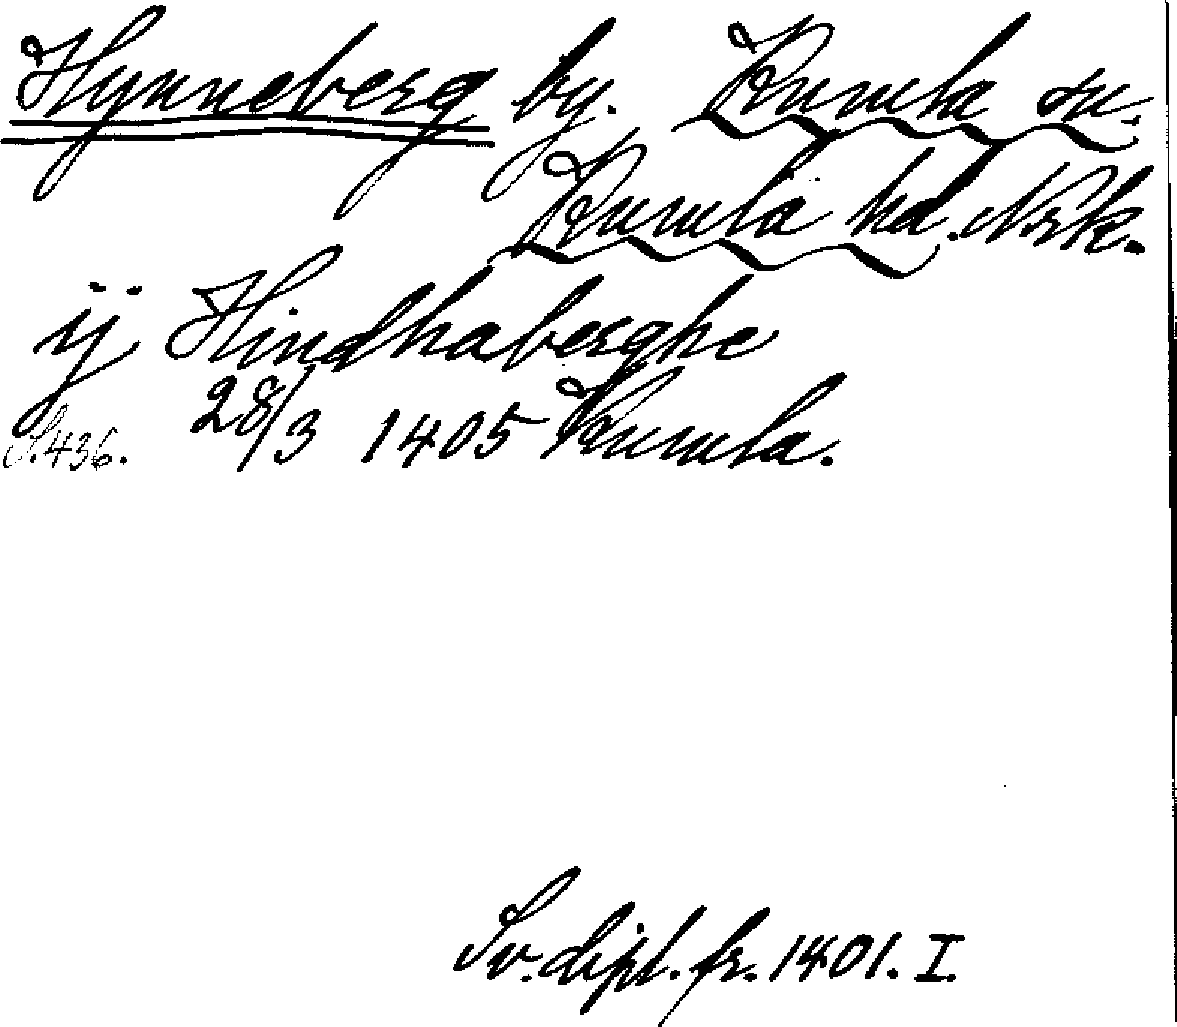 Hynneberg by. Kumla sn.
Kumla hd. Nrk.
ij Hindhaberghe
28/3 1405 Kumla.
S. 436.
Sv. dipl. fr. 1401. I.